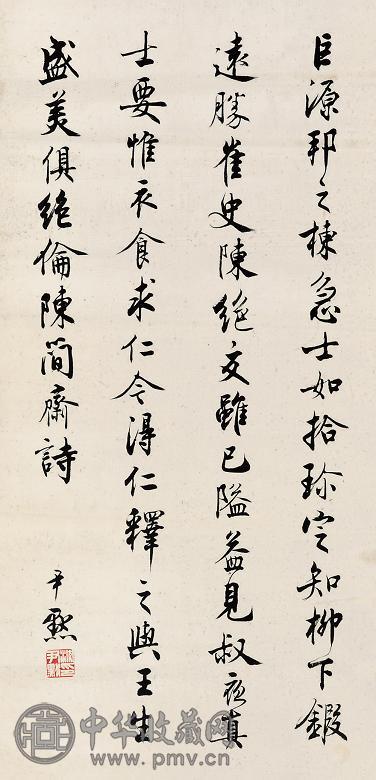 巨源邦之棟急士如拾珍定知柳下鍛
遠勝崔史陳絕交雖已隘益見叔夜真
士要惟衣食求仁今得仁釋之與王生
盛美俱絕倫陳簡齋詩
尹默
中华收藏网
www.pmv.cn